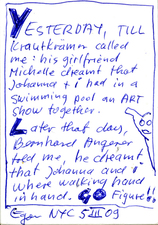 YESTERDAY, TILL
Krautkrämer called
me: his girlfriend
Michelle dreamt that
Johanna + i had in a
swimming pool an ART
show together.
Later that day,
Bernhard Angerer
tred me, he dreamt
that Johanna and i
where walking hand
in hand. GO Figure!!
NYC 5 III 09